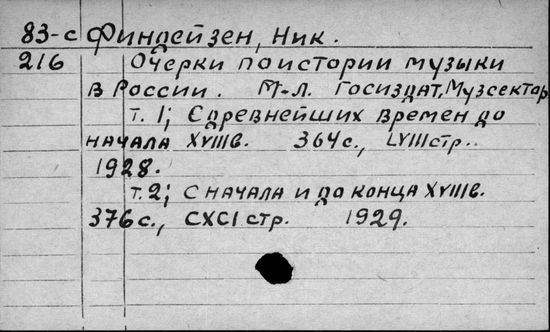 83-с Финдейзен, Ник.
216 Очерки по истории музыки
в России. М-Л. Госиздат, Музсектор
т. 1; С древнейших времен до
начала XVIIIв. 364с., LVIIIстр..
1928.
т. 2; С начала и до конца XVIIIв.
376с., CXCI стр. 1929.